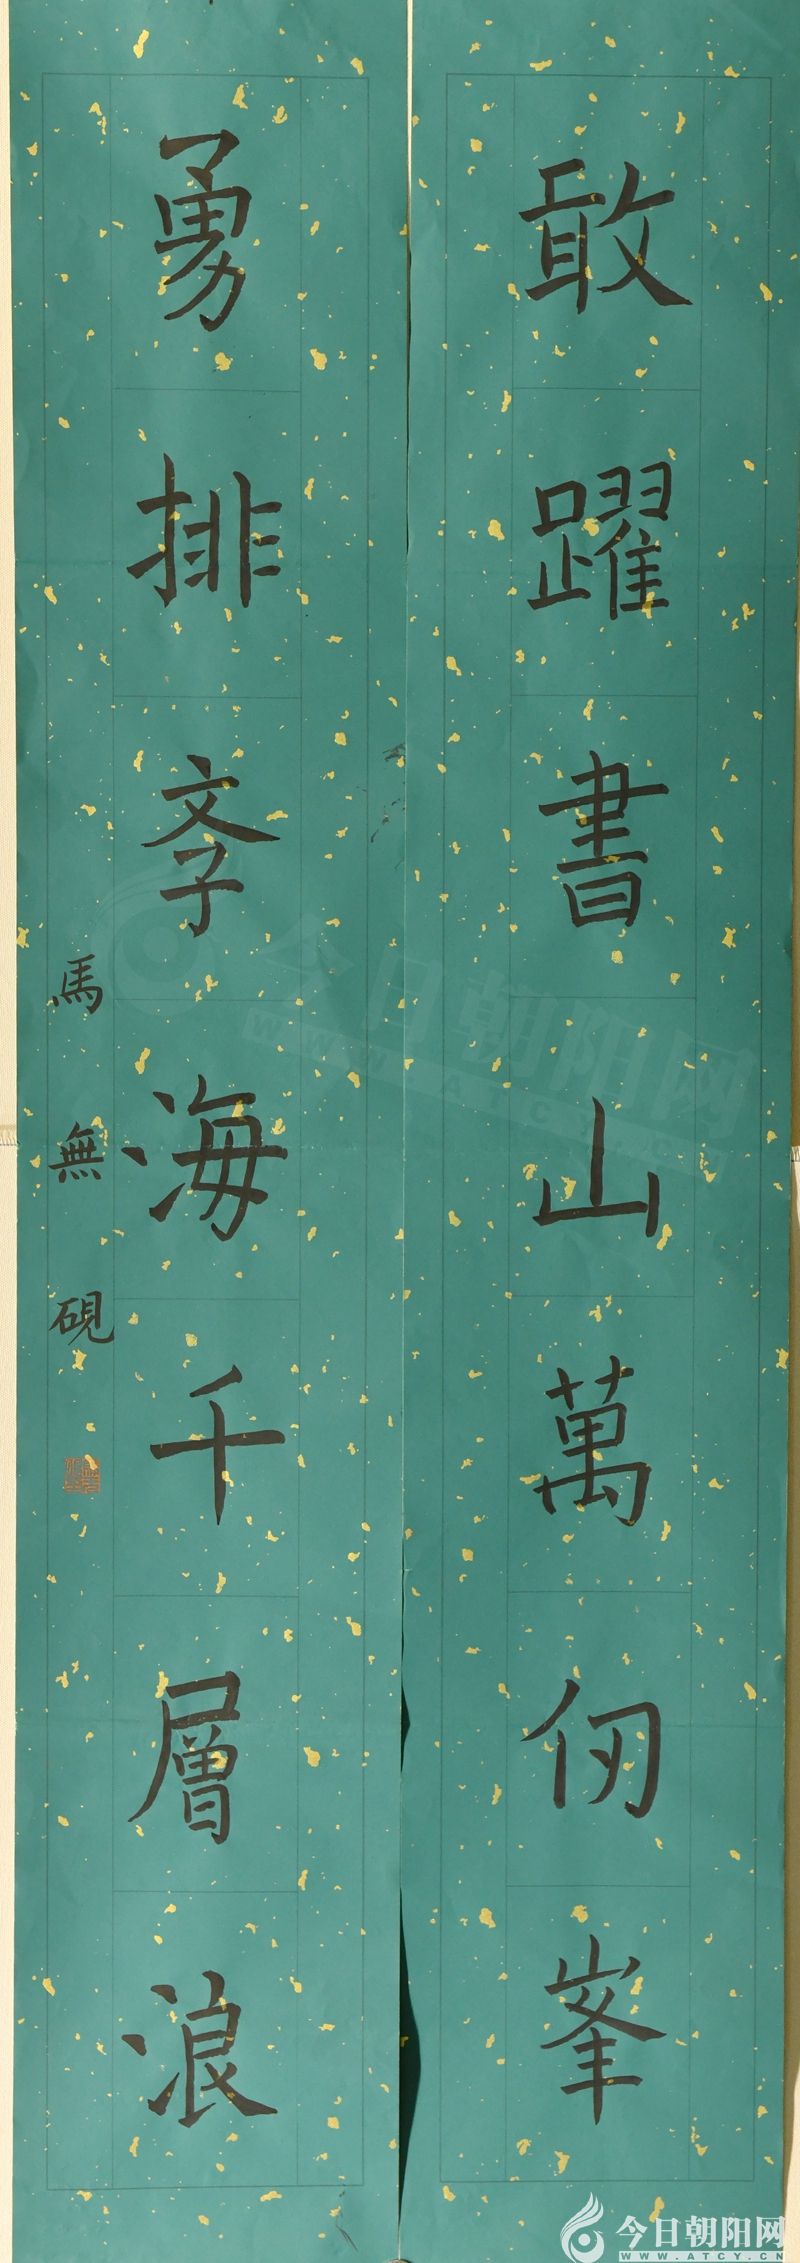 敢躍書山萬仞峯
勇排斈海千層浪
馬無硯
今日朝阳网
WWW.ATCY.CN
今日朝阳网
WWW.ATCY.CN